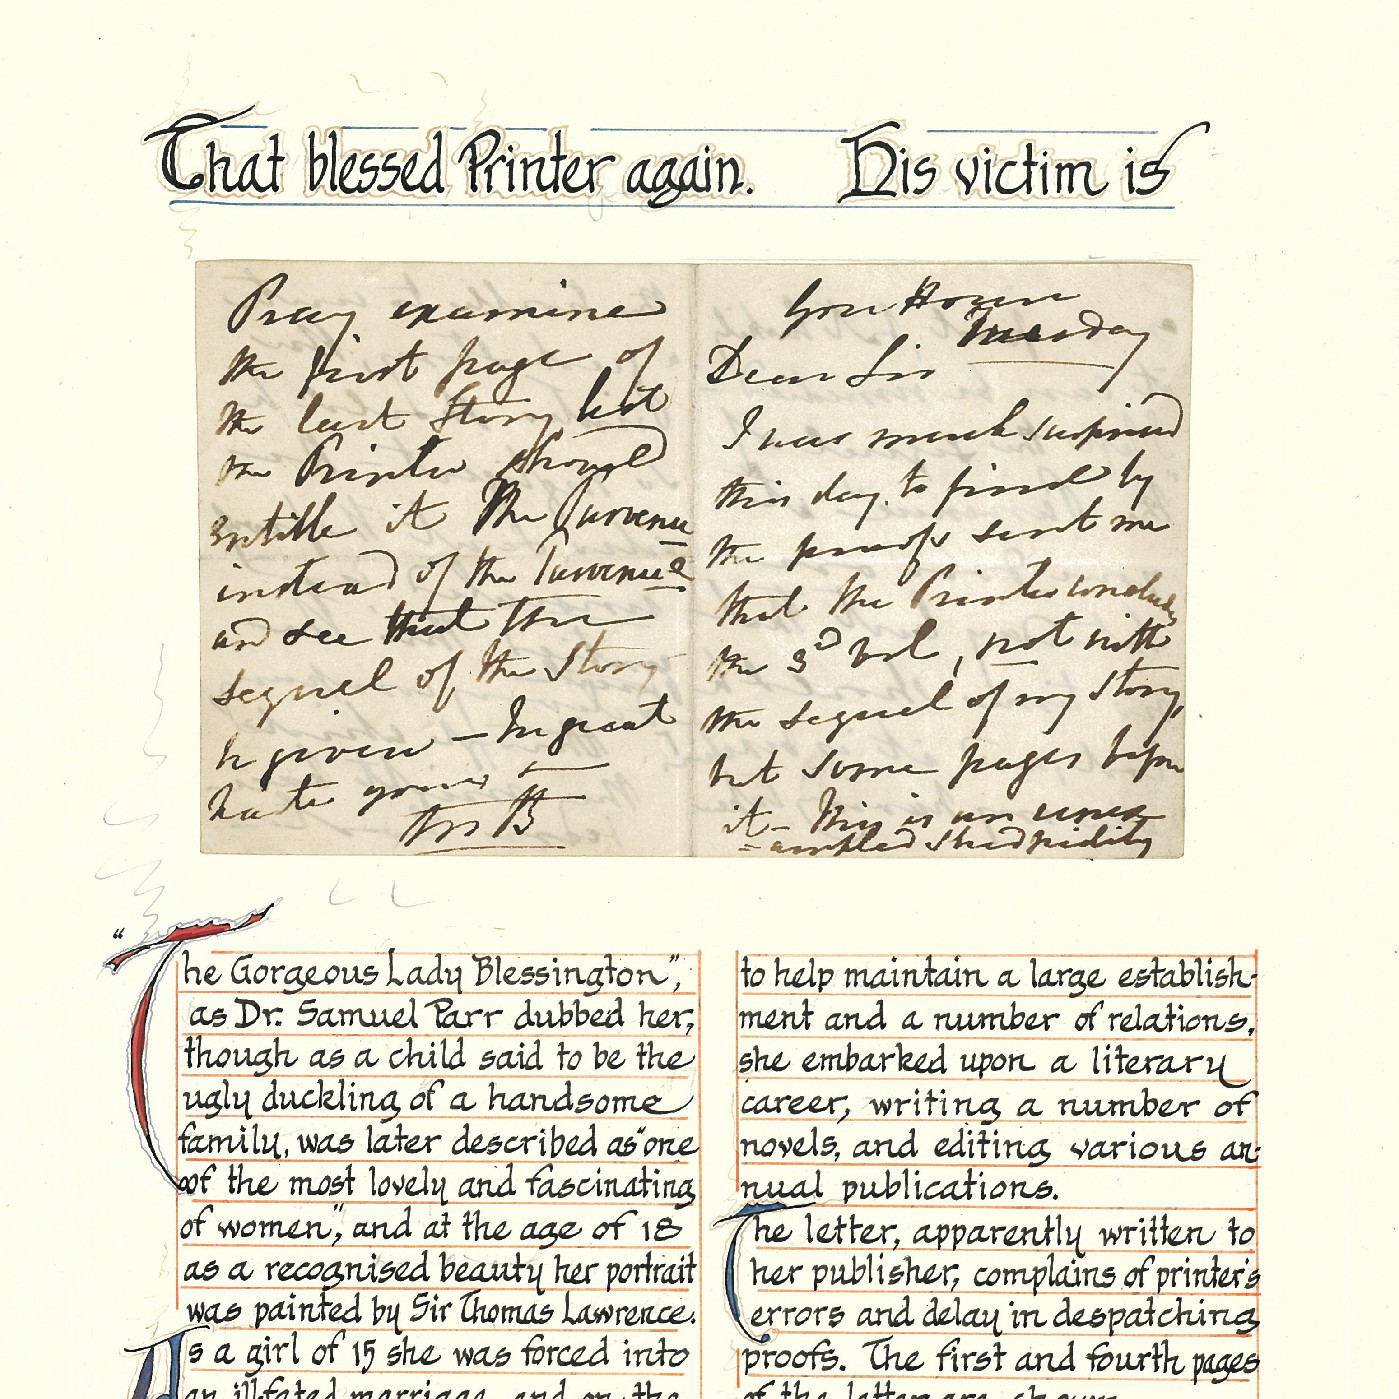 That blessed Printer again. His victim is
Pray examine
the first page of
the last Story lest
the Printer should
entitle it The Parvenu
instead of the Parvenue
and see that the
sequel of the Story
be given – In great
haste yours
Gore House
Tuesday
Dear Sir
I was much surprised
this day to find by
the proofs sent me
that the Printer concludes
the 3d vol, not with
the sequel of my Story,
but some pages before
it – This is an unex-
ampled Stupidity
“The Gorgeous Lady Blessington”,
as Dr. Samuel Parr dubbed her,
though as a child said to be the
ugly duckling of a handsome
family, was later described as “one
of the most lovely and fascinating
of women”, and at the age of 18
as a recognised beauty her portrait
was painted by Sir Thomas Lawrence.
As a girl of 15 she was forced into
an ill-fated marriage, and on the
to help maintain a large establish-
ment and a number of relations,
she embarked upon a literary
career, writing a number of
novels, and editing various an-
nual publications.
The letter, apparently written to
her publisher, complains of printer's
errors and delay in despatching
proofs. The first and fourth pages
of the letter are shown